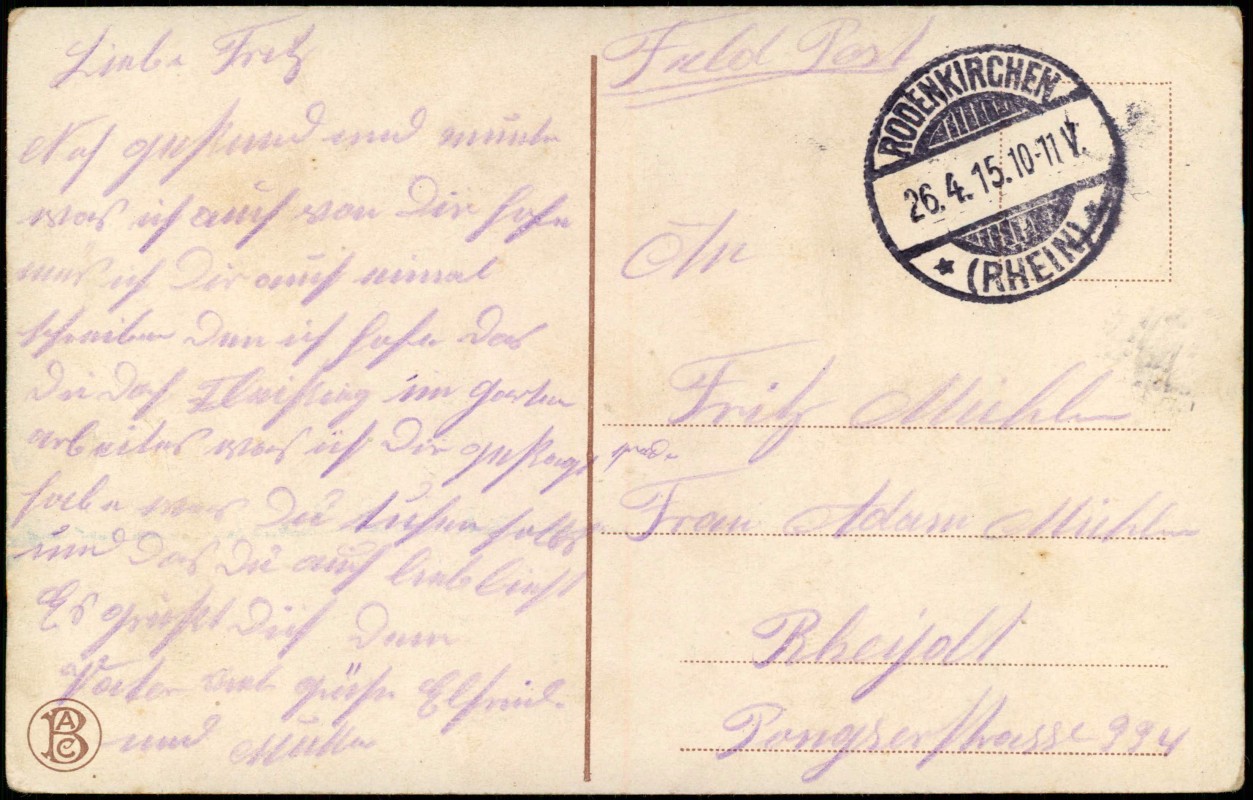 Liebe Fritz
Noch gesund und munter
was ich auch von Dir hofe
mus ich Dir auch einmal
schreiben Den ich hofe das
Du Doch Fleissig im Garten
arbeites was ich Dir gesagt
habe was Du tuhen solls
und Das Du auch lieb bist
Es grüßt Dich Dein
Vater viel grüße Elfried
und Mutter
Feld Post
RODENKIRCHEN
26.4.15.10-11 V.
(RHEIN)
An
Fritz Mühlen
Frau Adam Mühlen
Rheijdt
Pongserstrasse 994
ABC